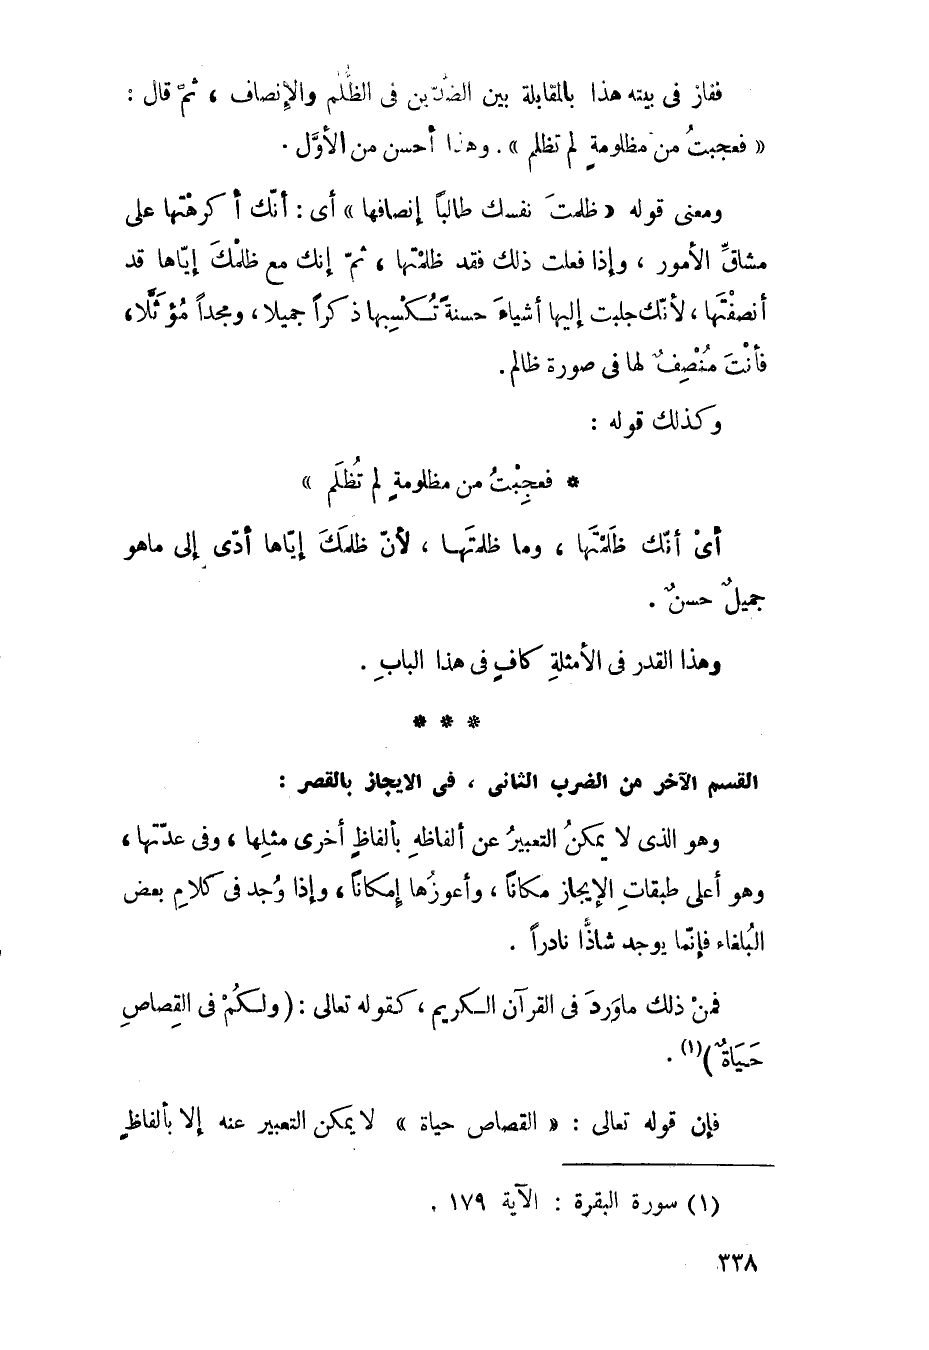 ففاز فى بيته هذا بالمقابلة بين الضدّين فى الظُّلم والإنصاف ، ثمّ قال :
« فعجبتُ من مظلومةٍ لم تظلم » . وهذا أحسن من الأوَّل .
ومعنى قوله « ظلمتَ نفسك طالباً إنصافها » أى : أنّك أكرهْتها على
مشاقِّ الأمور ، وإذا فعلت ذلك فقد ظلمْتها ، ثمّ إنك مع ظلمْكَ إيّاها قد
أنصفْتَها ، لأنّك جلبت إليها أشياءَ حسنةً تُكْسِبها ذكراً جميلا ، ومجداً مُؤثَّلا ،
فأنْتَ مُنْصِفٌ لها فى صورة ظالم .
وكذلك قوله :
* فعجِبْتُ من مظلومةٍ لم تُظلَم »
أىْ أنّك ظَلَمْتَها ، وما ظلمتَها ، لأنّ ظلمَكَ إيّاها أدّى إلى ماهو
جميلٌ حسنٌ .
وهذا القدر فى الأمثلةِ كافٍ فى هذا البابِ .
* * *
القسم الآخر من الضرب الثانى ، فى الايجاز بالقصر :
وهو الذى لا يمكنُ التعبيرُ عن ألفاظهِ بألفاظٍ أخرى مثلِها ، وفى عدّتها ،
وهو أعلى طبقاتِ الإيجاز مكاناً ، وأعوزُها إمكاناً ، وإذا وُجد فى كلامِ بعض
البُلغاء فإنّما يوجد شاذًّا نادراً .
فمنْ ذلك ماوَردَ فى القرآن الكريم ، كقوله تعالى : ( ولكُمْ فى القِصاصِ
حَيَاةٌ )(١) .
فإن قوله تعالى : « القصاص حياة » لا يمكن التعبير عنه إلا بألفاظٍ
(١) سورة البقرة : الآية ١٧٩ .
٣٣٨